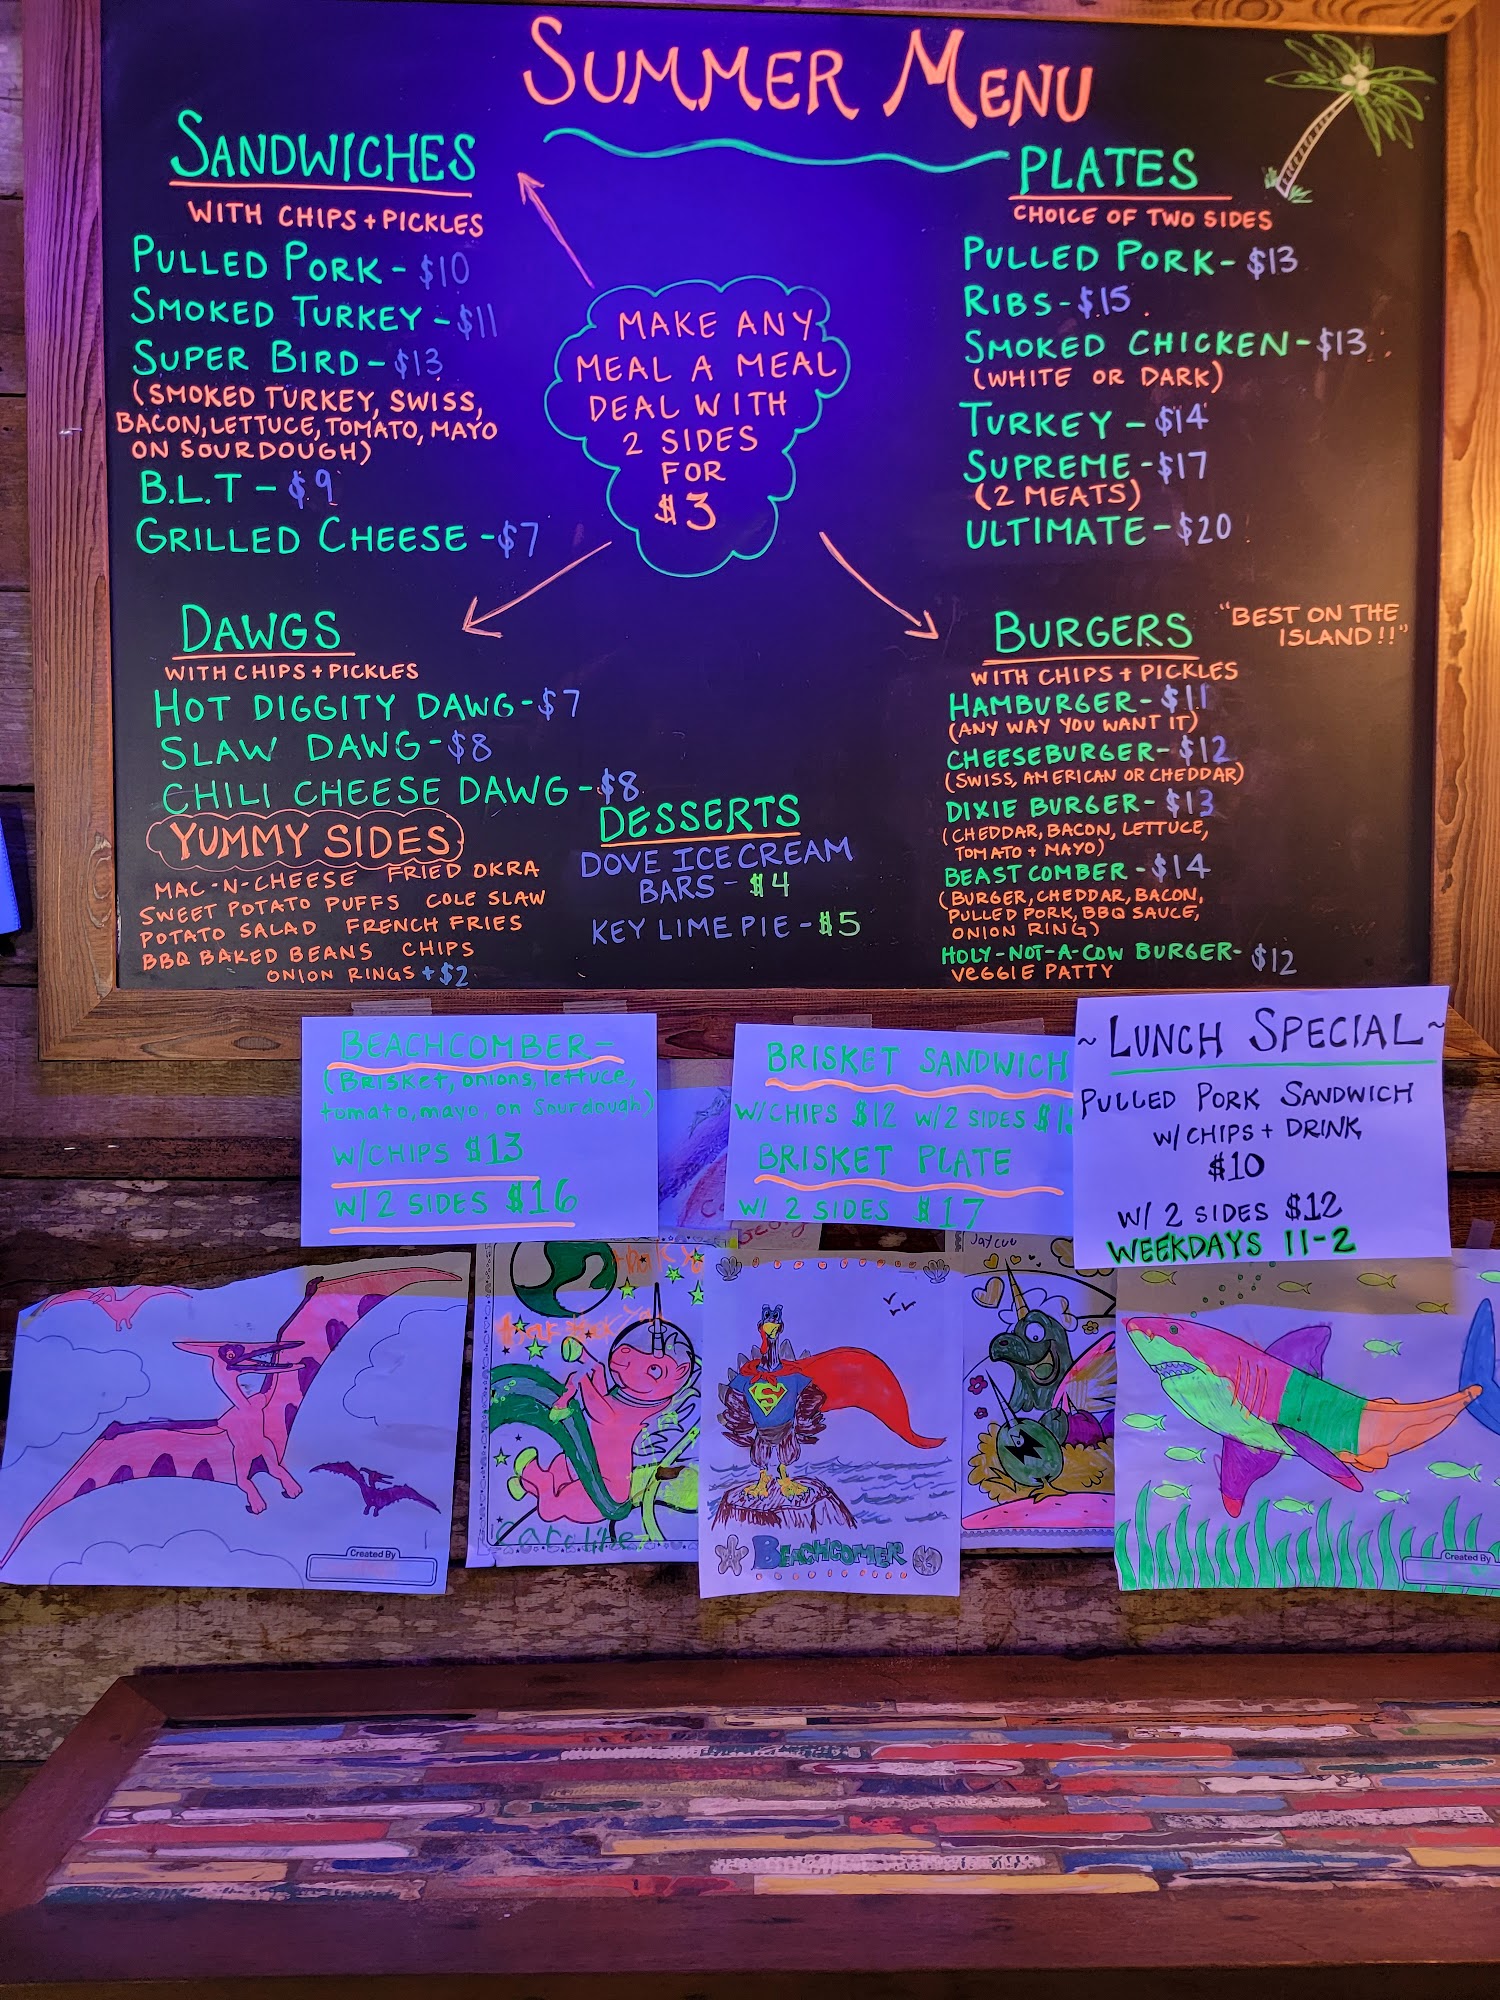 SUMMER MENU
SANDWICHES
WITH CHIPS + PICKLES
PULLED PORK - $10
SMOKED TURKEY - $11
SUPER BIRD - $13
(SMOKED TURKEY, SWISS,
BACON, LETTUCE, TOMATO, MAYO
ON SOURDOUGH)
B.L.T - $9
GRILLED CHEESE - $7
MAKE ANY
MEAL A MEAL
DEAL WITH
2 SIDES
FOR
$3
PLATES
CHOICE OF TWO SIDES
PULLED PORK - $13
RIBS - $15
SMOKED CHICKEN - $13
(WHITE OR DARK)
TURKEY - $14
SUPREME - $17
(2 MEATS)
ULTIMATE - $20
DAWGS
WITH CHIPS + PICKLES
HOT DIGGITY DAWG - $7
SLAW DAWG - $8
CHILI CHEESE DAWG - $8
YUMMY SIDES
MAC-N-CHEESE FRIED OKRA
SWEET POTATO PUFFS COLE SLAW
POTATO SALAD FRENCH FRIES
BBQ BAKED BEANS CHIPS
ONION RINGS + $2
DESSERTS
DOVE ICE CREAM
BARS - $4
KEY LIME PIE - $5
BURGERS
"BEST ON THE
ISLAND!!"
WITH CHIPS + PICKLES
HAMBURGER - $11
(ANY WAY YOU WANT IT)
CHEESEBURGER - $12
(SWISS, AMERICAN OR CHEDDAR)
DIXIE BURGER - $13
(CHEDDAR, BACON, LETTUCE,
TOMATO + MAYO)
BEAST COMBER - $14
(BURGER, CHEDDAR, BACON,
PULLED PORK, BBQ SAUCE,
ONION RING)
HOLY-NOT-A-COW BURGER - $12
VEGGIE PATTY
BEACHCOMBER -
(Brisket, onions, lettuce,
tomato, mayo, on Sourdough)
W/CHIPS $13
W/ 2 SIDES $16
BRISKET SANDWICH
W/CHIPS $12 W/2 SIDES
BRISKET PLATE
W/ 2 SIDES $17
~LUNCH SPECIAL~
PULLED PORK SANDWICH
W/ CHIPS + DRINK
$10
W/ 2 SIDES $12
WEEKDAYS 11-2
Created By
Caroline
S
BEACHCOMER
Created By